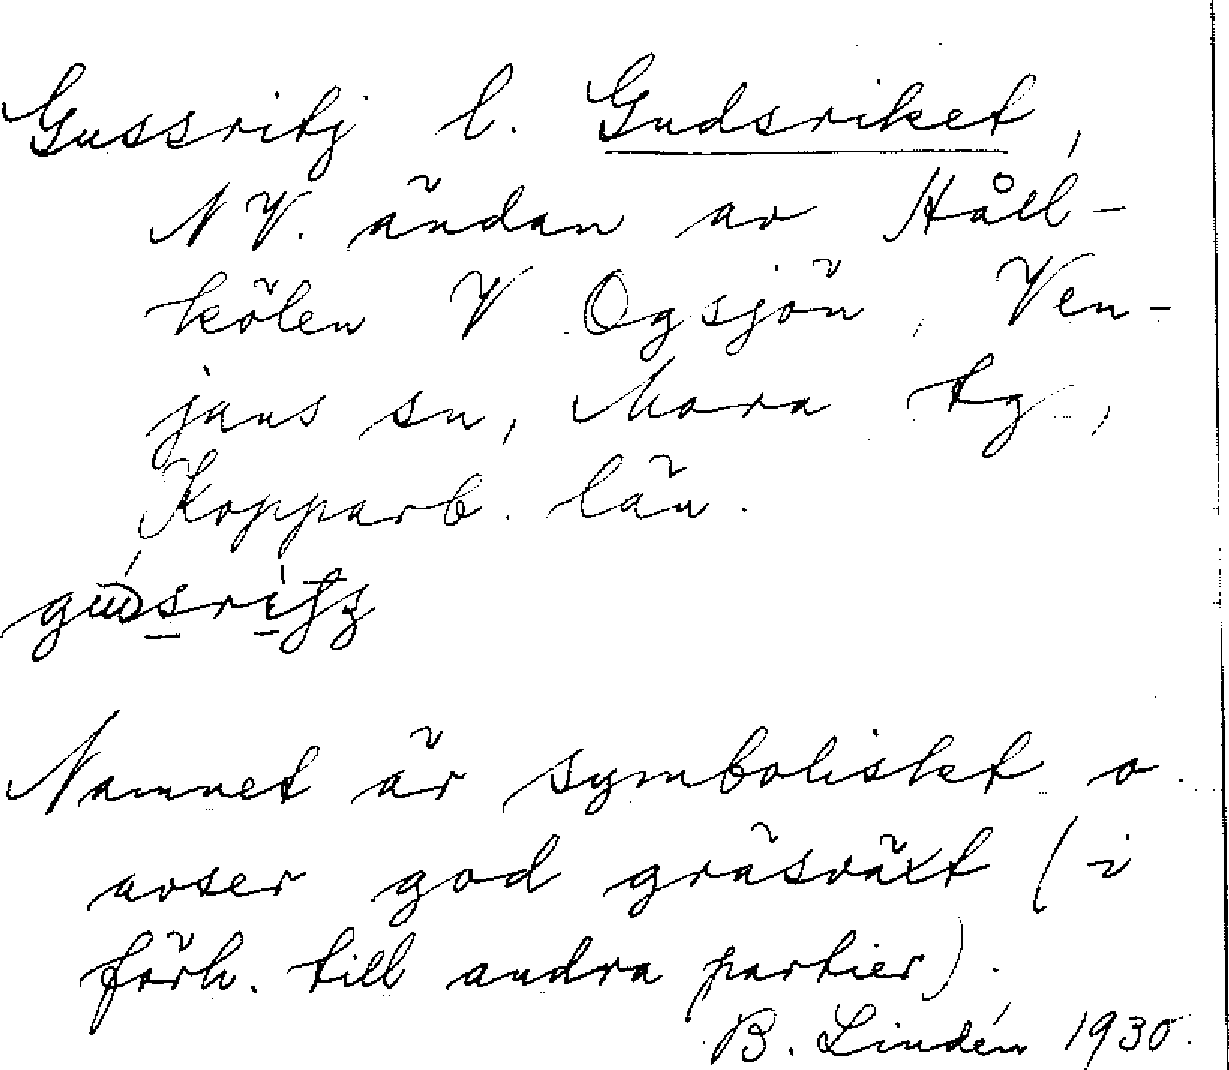 Gussritj l. Gudsriket,
NV. ändan av Håll-
kölen V Ogsjön, Ven-
jans sn, Mora tg.,
Kopparb. län.
Namnet är symboliskt o.
avser god gräsväxt (i
förh. till andra partier).
B. Lindén 1930.